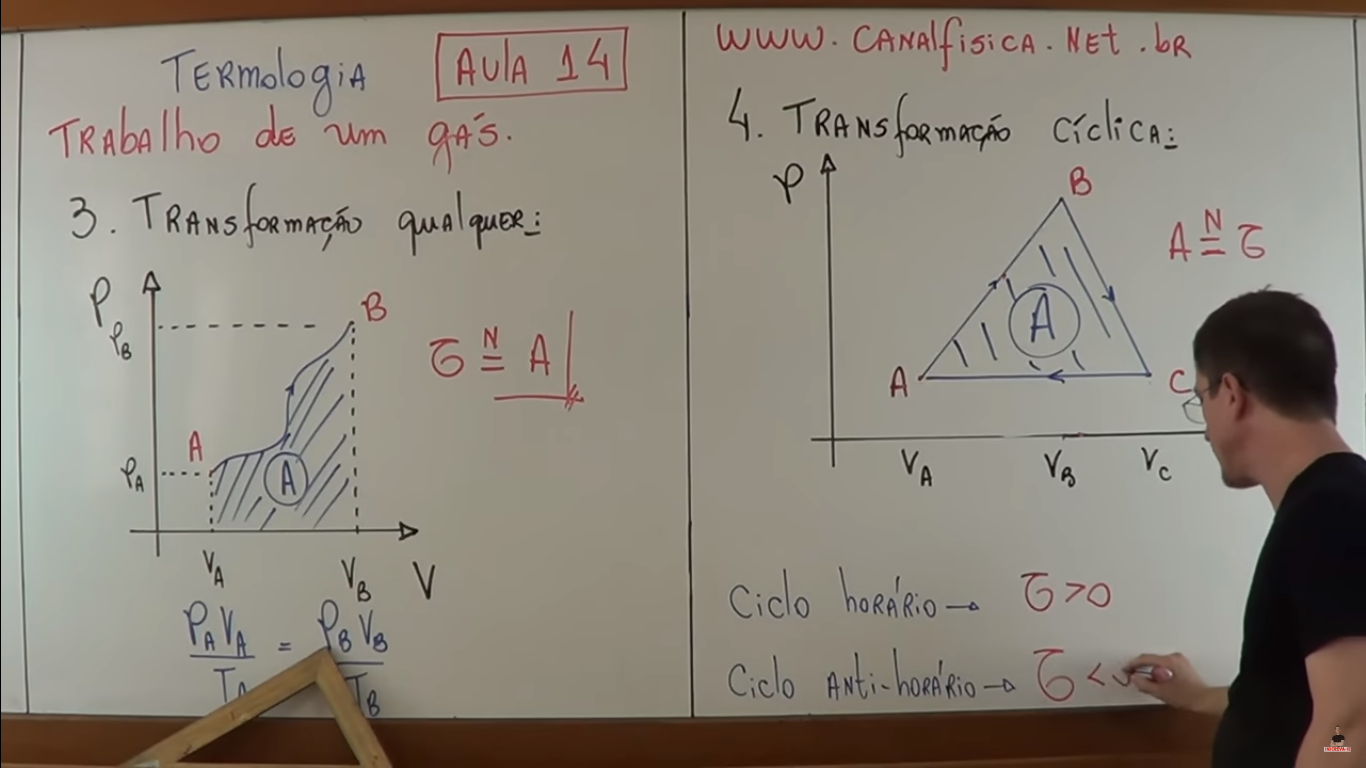 Termologia
Aula 14
Trabalho de um gás.
3. Transformação qualquer:
P
PB
B
A
PA
A
VA
VB
V
τ N= A
PA VA / TA = PB VB / TB
www.canalfisica.net.br
4. Transformação cíclica:
P
B
A N= τ
A
A
C
VA
VB
VC
Ciclo horário → τ > 0
Ciclo anti-horário → τ <